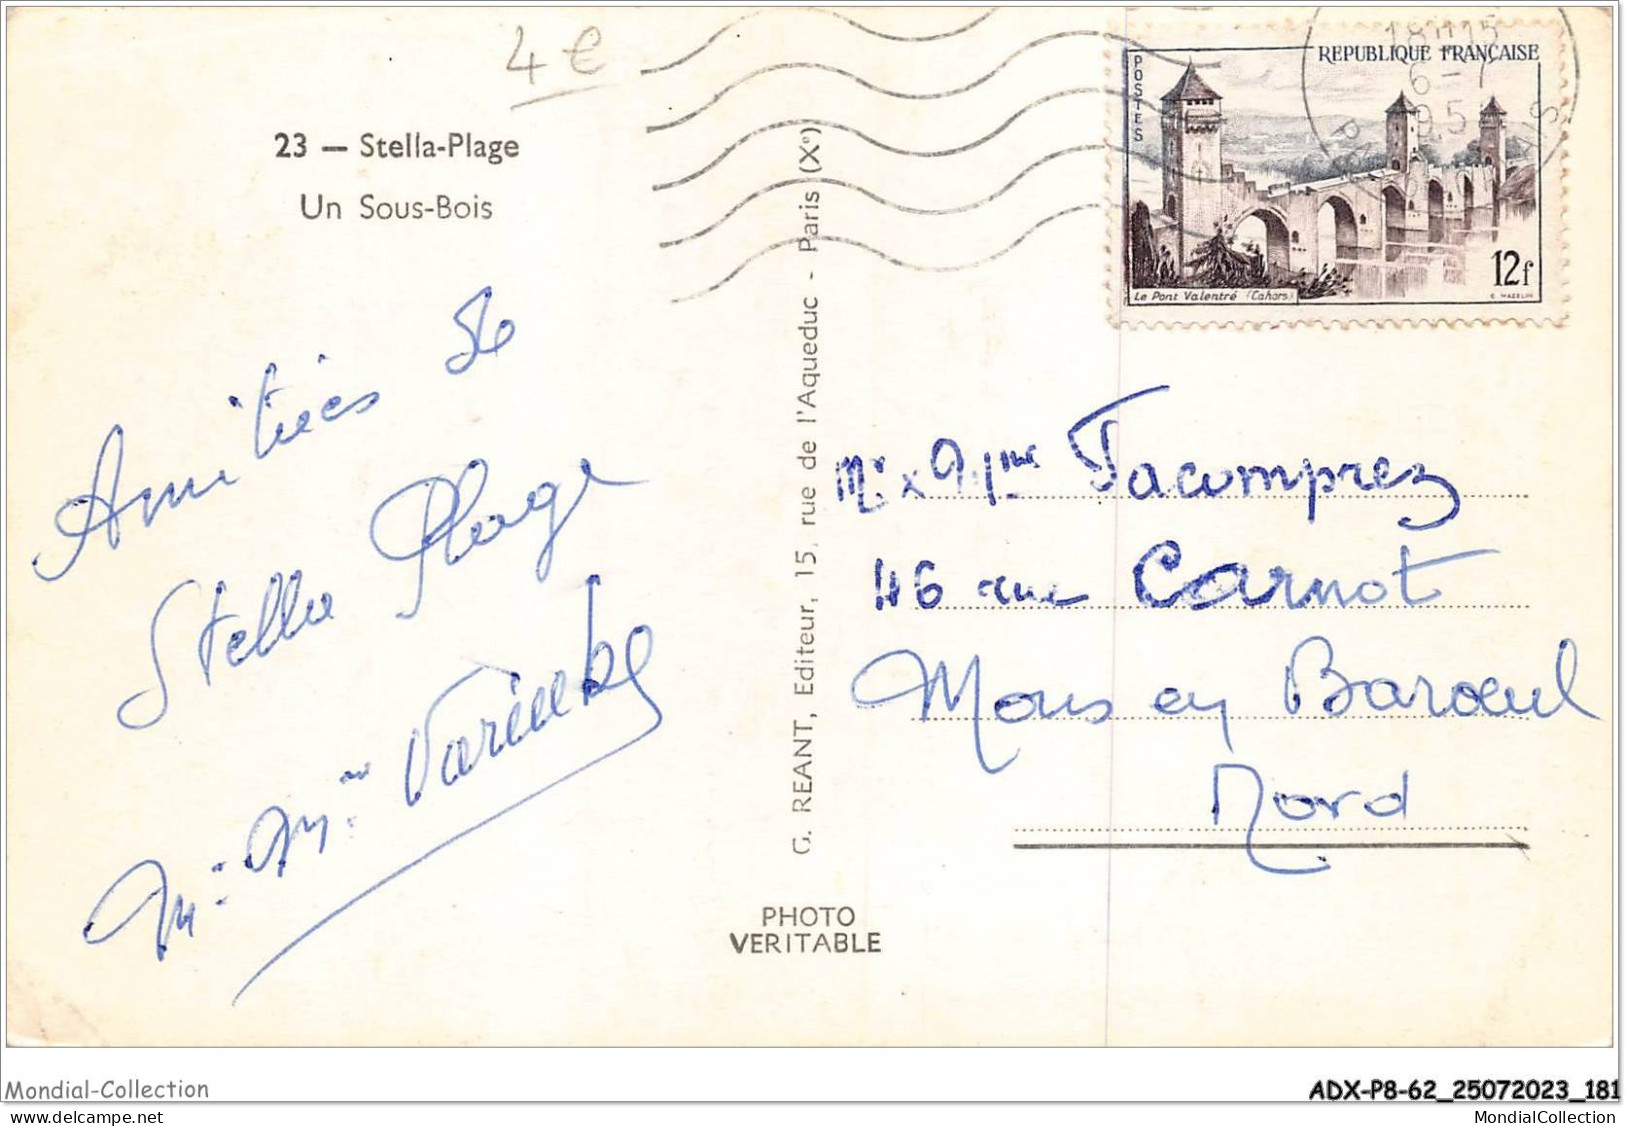 4 €
23 — Stella-Plage
Un Sous-Bois
REPUBLIQUE FRANÇAISE
POSTES
18H15
6 - 7
PARIS
12f
Le Pont Valentré (Cahors)
C. MAZELIN
Amitiés de
Stella Plage
G. REANT, Editeur, 15, rue de l'Aqueduc - Paris (Xe)
Tacomprez
46 rue Carnot
Mons en Baroeul
Nord
PHOTO
VERITABLE
Mondial-Collection
ADX-P8-62_25072023_181
www.delcampe.net
MondialCollection